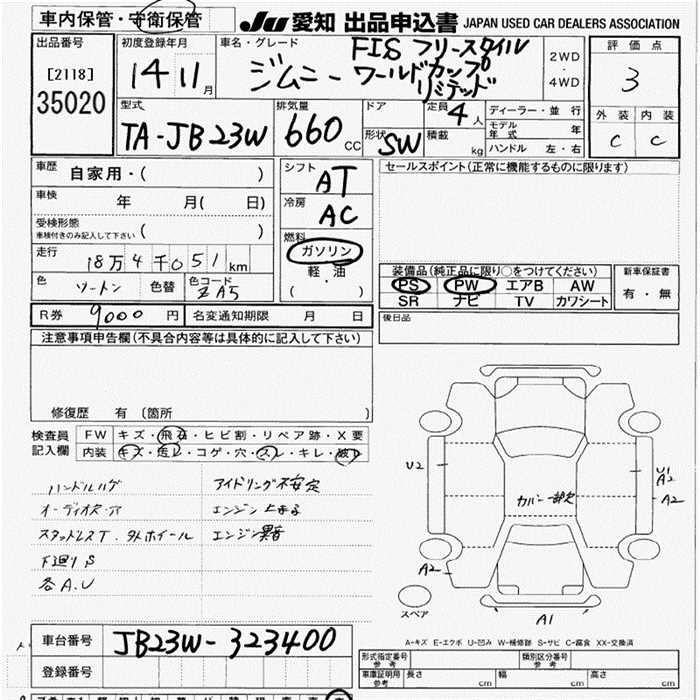 車内保管・守衛保管
JU 愛知 出品申込書 JAPAN USED CAR DEALERS ASSOCIATION
出品番号
[2118]
35020
初度登録年月
14 11月
車名・グレード
ジムニー FISフリースタイル
ワールドカップ
リミテッド
2WD
・
4WD
評価点
3
外装 内装
C C
型式
TA-JB23W
排気量
660 CC
ドア
形状 SW
定員 4人
積載 kg
ディーラー・並行
モデル年式 年
ハンドル 左・右
車歴 自家用・( )
車検 年 月( 日)
受検形態
車検付きのみ記入して下さい ( )
走行 18万4千051km
色 ツートン 色替 色コード ZA5
シフト AT
冷房 AC
燃料
ガソリン
軽・油
( ・ )
セールスポイント(正常に機能するものに限ります)
装備品(純正品に限り○をつけてください)
PS PW エアB AW
SR ナビ TV カワシート
新車保証書
有・無
R券 9000円 名変通知期限 月 日
後日品
注意事項申告欄(不具合内容等は具体的に記入して下さい)
修復歴 有 (箇所 )
検査員記入欄
FW キズ・飛石・ヒビ割・リペア跡・X要
内装 キズ・汚レ・コゲ・穴・スレ・キレ・破レ
ハンドルハゲ
オーディオス.穴
スタッドレスT.外ホイール
下廻りS
各A.U
アイドリング不安定
エンジン異音
U2
U1
A2
A2
カバー一部欠
A2
A1
スペア
A-キズ E-エクボ U-凹み W-補修跡 S-サビ C-腐食 XX-交換済
車台番号 JB23W-323400
登録番号
形式指定番号
参考
類別区分番号
参考
車庫証明用
参考
長さ cm 幅 cm 高さ cm